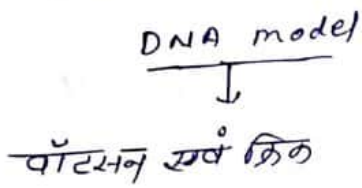 DNA model
वॉटसन एवं क्रिक